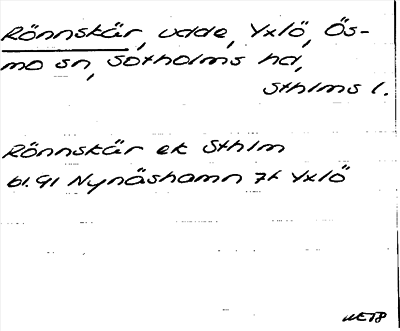 Rönnskär, udde, Yxlö, Ös-
mo sn, Sotholms hd,
Sthlms l.
Rönnskär ek Sthlm
bl. 91 Nynäshamn 7k Yxlö